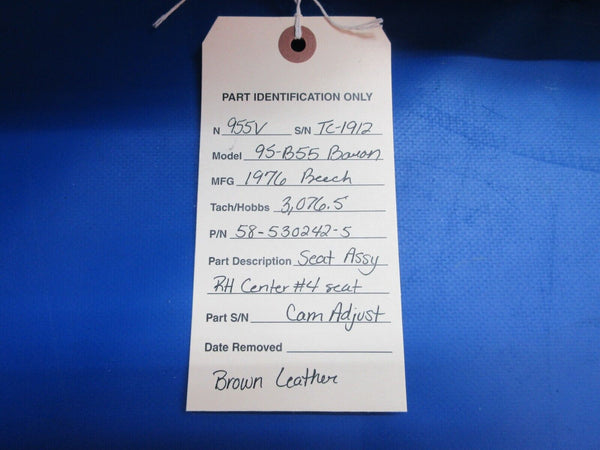 PART IDENTIFICATION ONLY
N 955V S/N TC-1912
Model 95-B55 Baron
MFG 1976 Beech
Tach/Hobbs 3,076.5
P/N 58-530242-5
Part Description Seat Assy
RH Center #4 seat
Part S/N Cam Adjust
Date Removed
Brown Leather